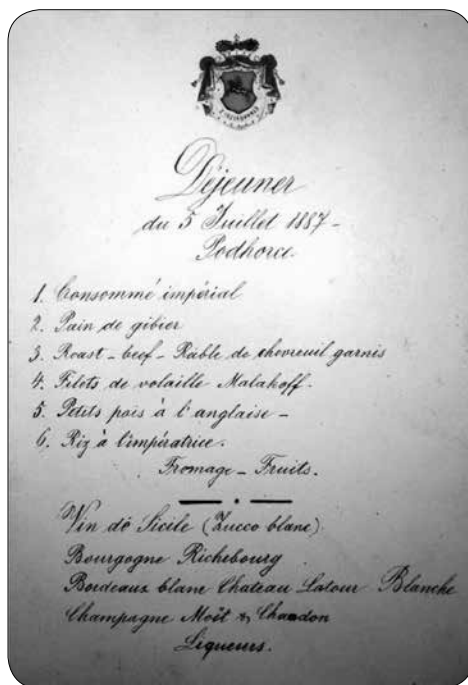 Déjeuner
du 5 Juillet 1887 -
Podhorce.
1. Consommé impérial
2. Pain de gibier
3. Roast - beef - Râble de chevreuil garnis
4. Filets de volaille Malakoff.
5. Petits pois à l'anglaise -
6. Riz à l'impératrice.
Fromage - Fruits.
Vin de Sicile (Zucco blanc)
Bourgogne Richebourg
Bordeaux blanc Chateau Latour Blanche
Champagne Moët & Chandon
Liqueurs.